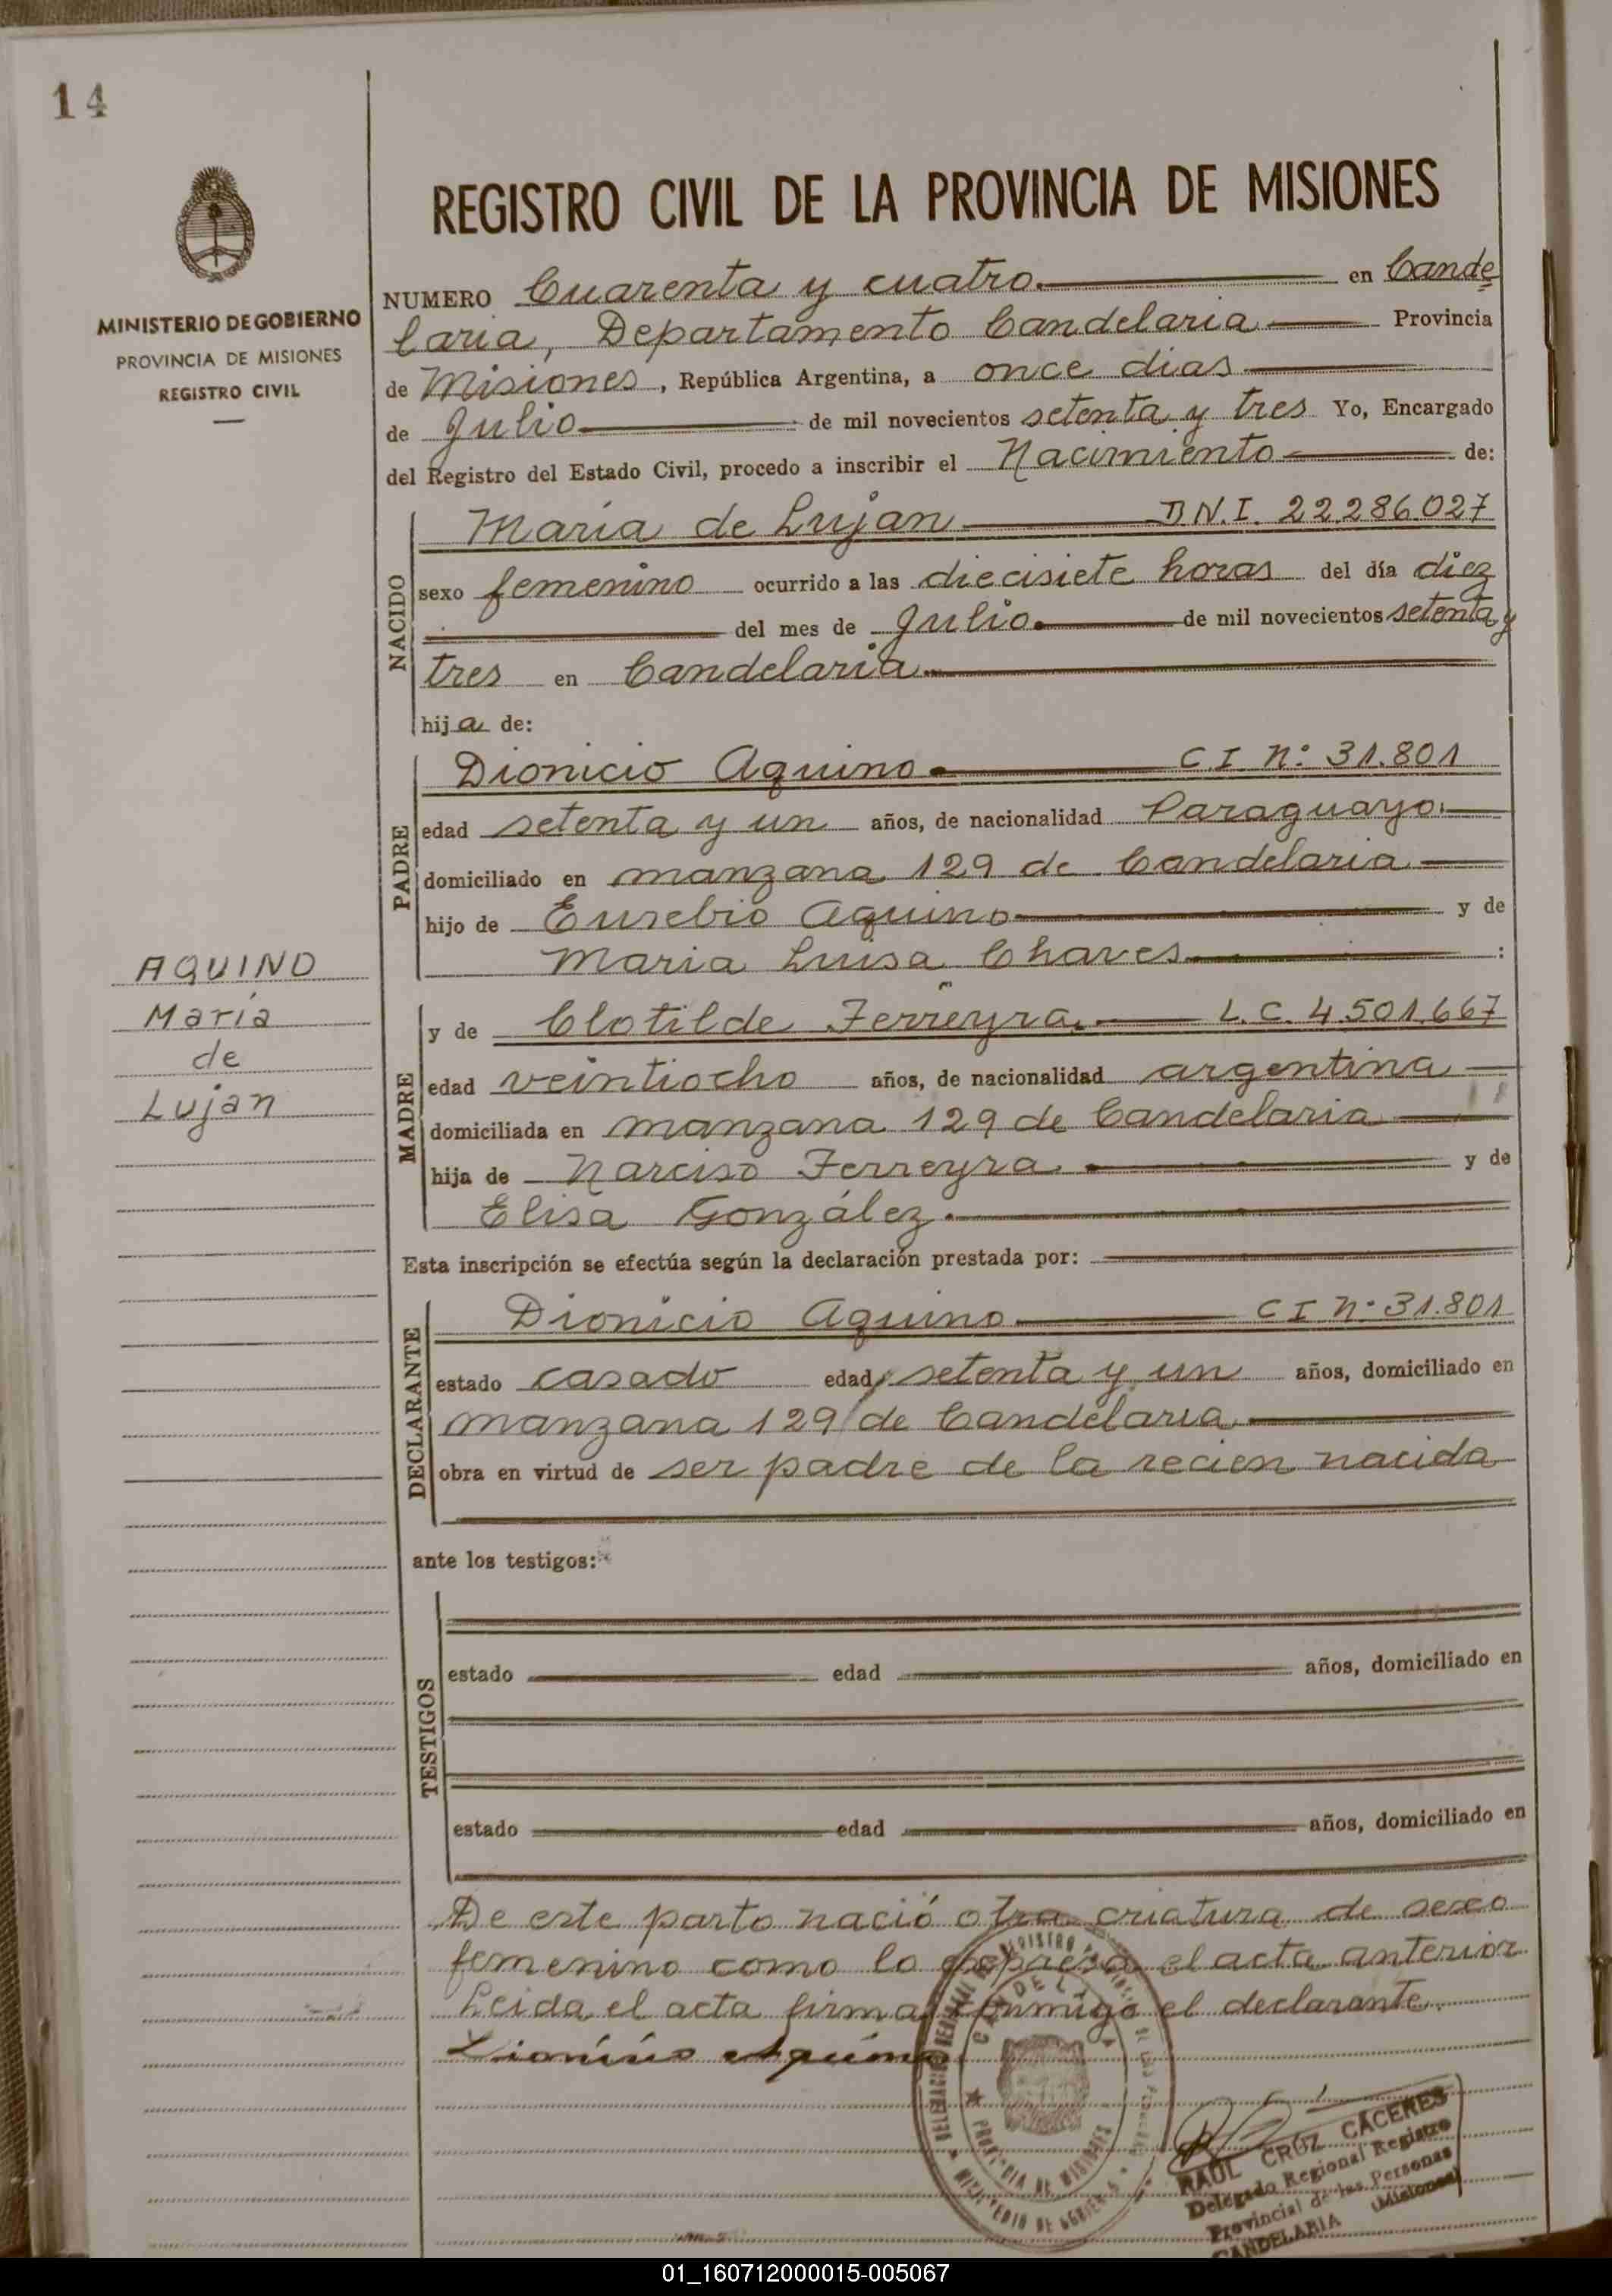 14
MINISTERIO DE GOBIERNO
PROVINCIA DE MISIONES
REGISTRO CIVIL
REGISTRO CIVIL DE LA PROVINCIA DE MISIONES
NUMERO Cuarenta y cuatro. en Cande
laria, Departamento Candelaria Provincia
de Misiones, República Argentina, a once dias
de Julio de mil novecientos setenta y tres Yo, Encargado
del Registro del Estado Civil, procedo a inscribir el Nacimiento de:
NACIDO
María de Lujan D.N.I. 22.286.027
sexo femenino ocurrido a las diecisiete horas del día diez
del mes de Julio. de mil novecientos setenta y
tres en Candelaria.
hija de:
PADRE
Dionicio Aquino. C.I. Nº 31.801
edad setenta y un años, de nacionalidad Paraguayo.
domiciliado en manzana 129 de Candelaria
hijo de Eusebio Aquino y de
Maria Luisa Chaves :
AQUINO
María
de
Lujan
MADRE
y de Clotilde Ferreyra. L.C. 4.501.667
edad veintiocho años, de nacionalidad argentina
domiciliada en manzana 129 de Candelaria
hija de Narciso Ferreyra. y de
Elisa González.
Esta inscripción se efectúa según la declaración prestada por:
DECLARANTE
Dionicio Aquino C I Nº 31.801
estado casado edad setenta y un años, domiciliado en
manzana 129 de Candelaria
obra en virtud de ser padre de la recien nacida
ante los testigos:
TESTIGOS
estado edad años, domiciliado en
estado edad años, domiciliado en
De este parto nació otra criatura de sexo
femenino como lo expresa el acta anterior
Leida el acta firma conmigo el declarante.
Dionicio Aquino
PROVINCIA DE MISIONES
RAUL CRUZ CACERES
Delegado Regional Registro
Provincial de las Personas
CANDELARIA (Misiones)
01_160712000015-005067